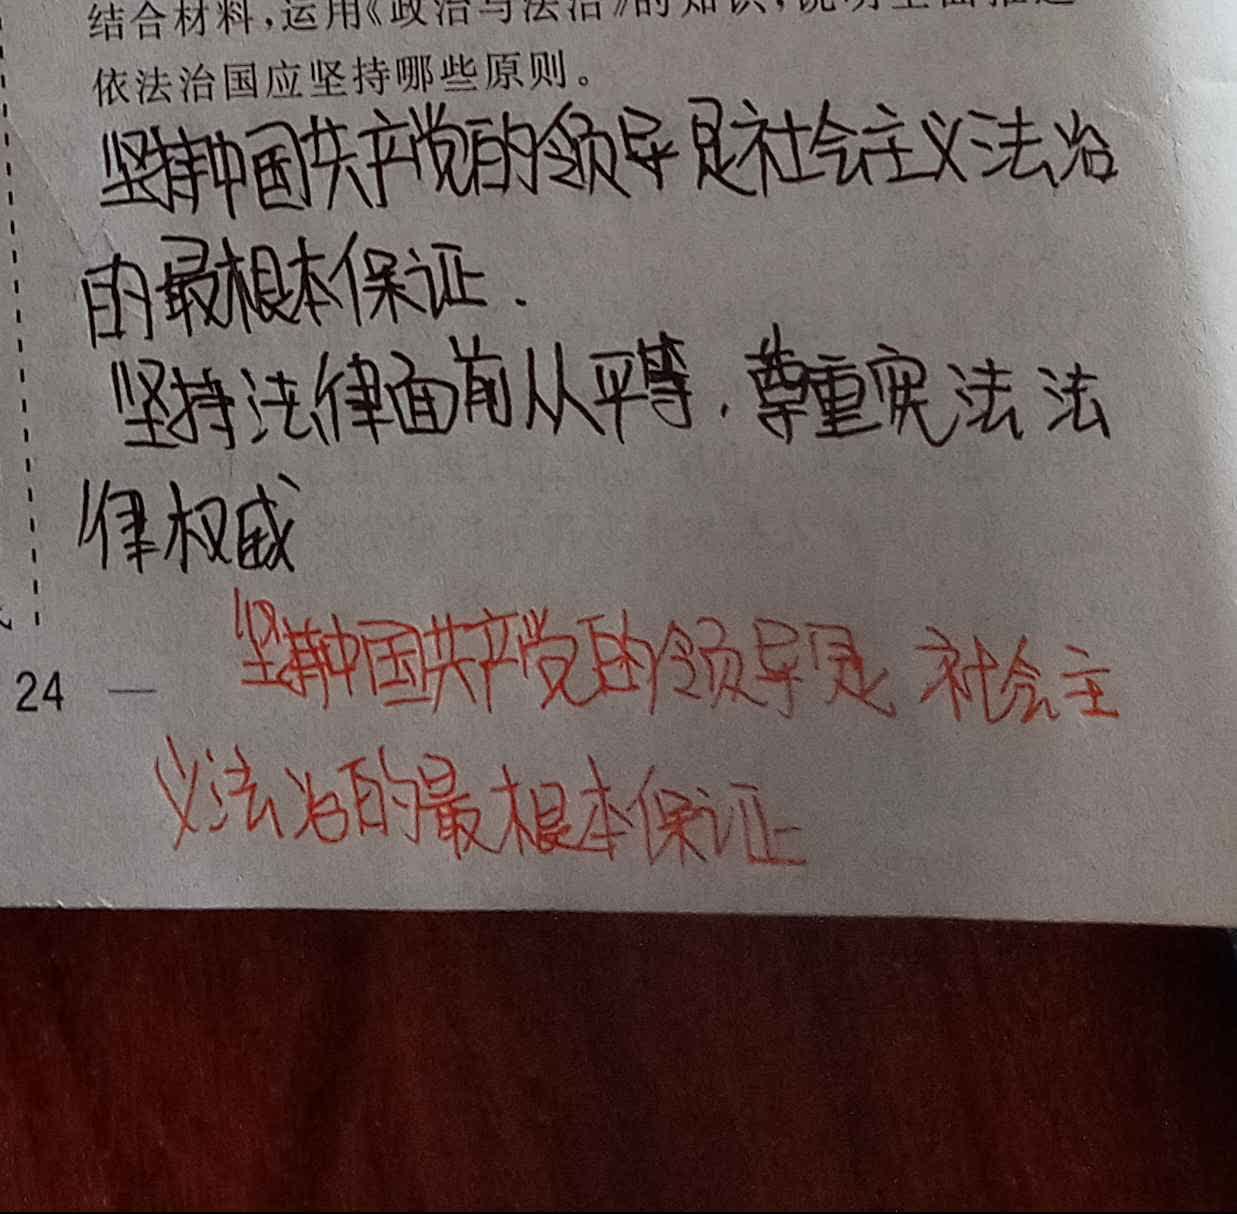 结合材料,运用《政治与法治》的知识,说明全面推进
依法治国应坚持哪些原则。
坚持中国共产党的领导是社会主义法治
的最根本保证.
坚持法律面前从平等,尊重宪法法
律权威
坚持中国共产党的领导是 社会主
24 —
义法治的最根本保证